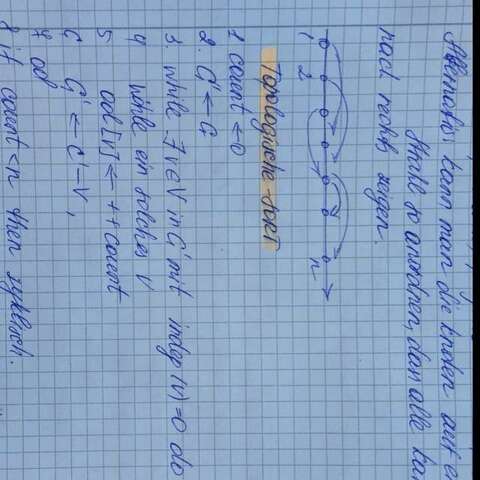 Alternativ kann man die Knoten auf e
Strahl so anordnen, dass alle Kan
nach rechts zeigen.
1 2 n
Topologische-Sort
1 count ← 0
2. G' ← G
3. while ∃v∈V in G' mit indeg(v)=0 do
4 wähle ein solches v
5 ord[v] ← ++count
6 G' ← G' - v,
7 od
8 if count < n then zyklisch.